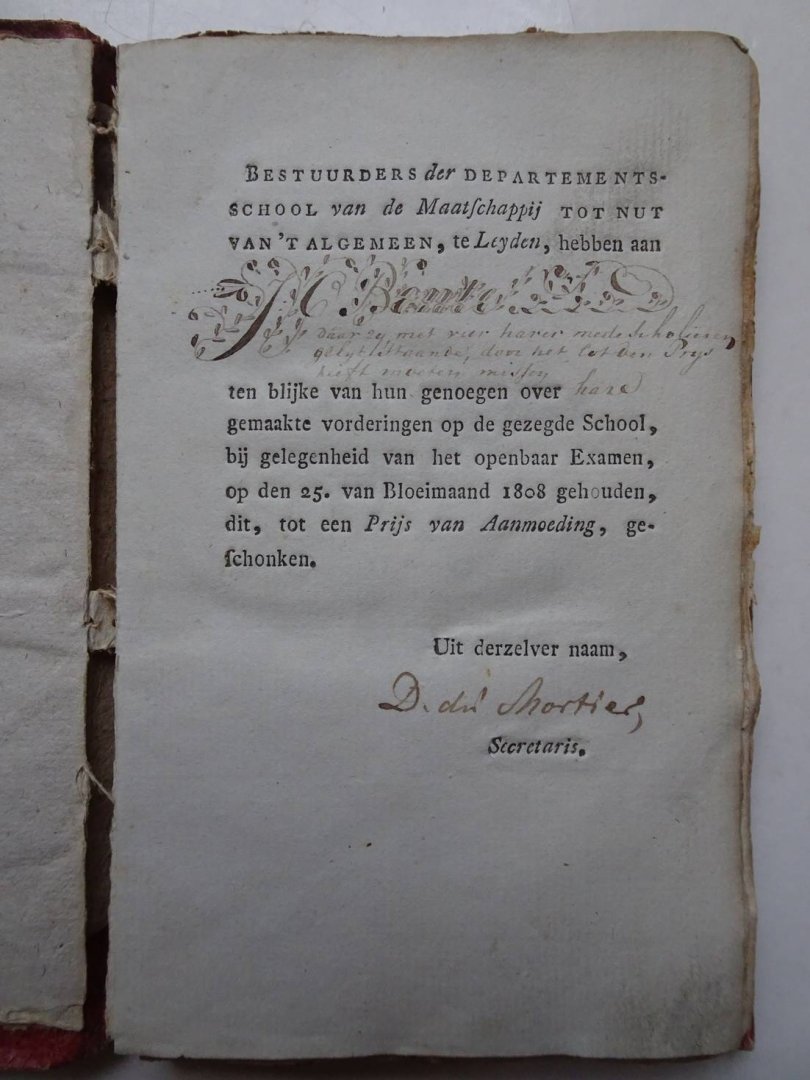 BESTUURDERS der DEPARTEMENTS-
SCHOOL van de Maatſchappij TOT NUT
VAN 'T ALGEMEEN, te Leyden, hebben aan
daar zy met vier harer mede scholieren
door het Lot den Prys
heeft moeten missen
ten blijke van hun genoegen over hare
gemaakte vorderingen op de gezegde School,
bij gelegenheid van het openbaar Examen,
op den 25. van Bloeimaand 1808 gehouden,
dit, tot een Prijs van Aanmoeding, ge-
ſchonken.
Uit derzelver naam,
D. du Mortier,
Secretaris.